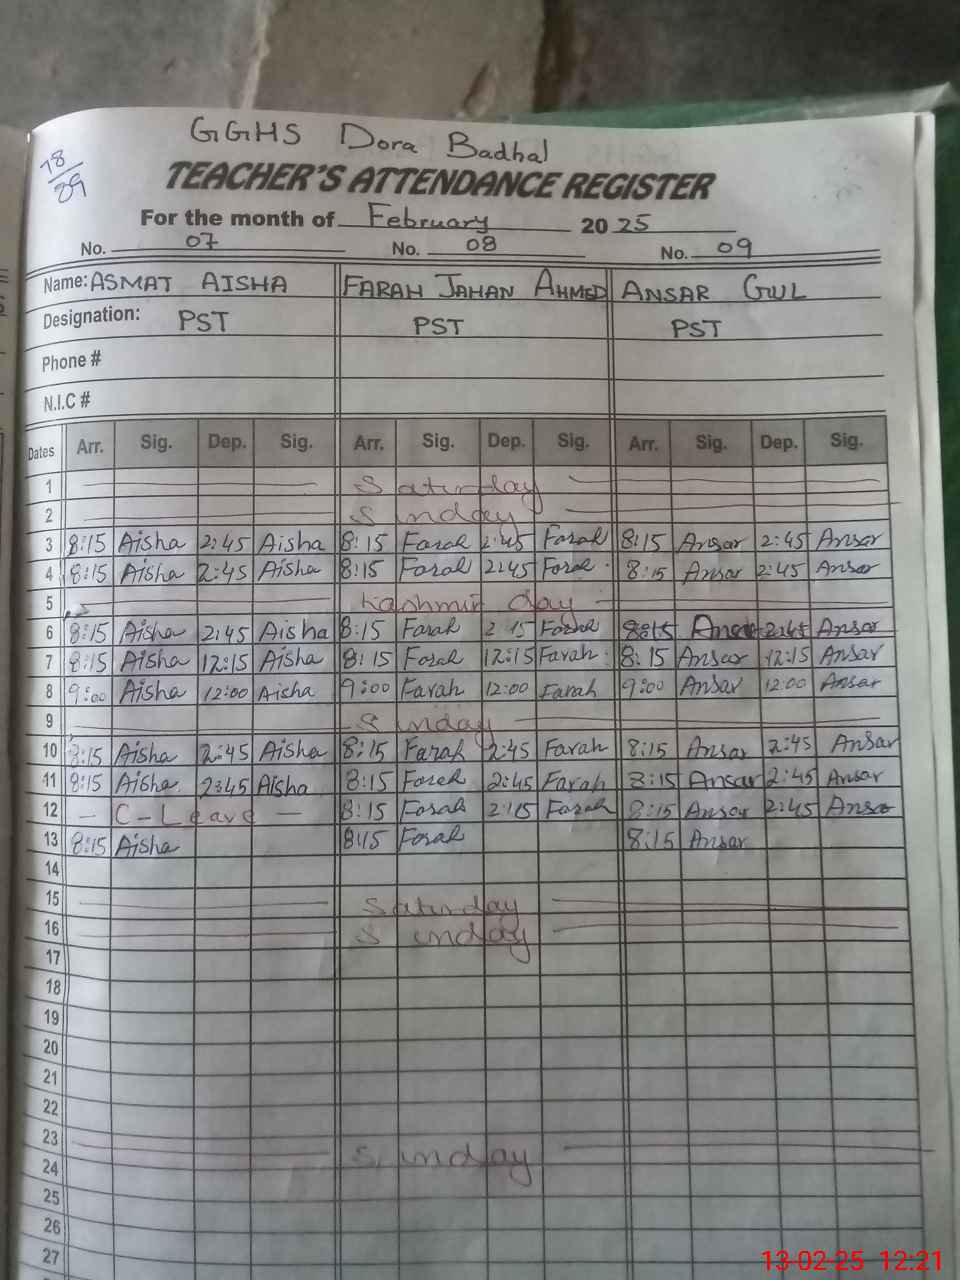 GGHS Dora Badhal
78/89
TEACHER'S ATTENDANCE REGISTER
For the month of February 2025
No. 07 No. 08 No. 09
Name: ASMAT AISHA FARAH JAHAN AHMED ANSAR GUL
Designation: PST PST PST
Phone #
N.I.C #
Dates Arr. Sig. Dep. Sig. Arr. Sig. Dep. Sig. Arr. Sig. Dep. Sig.
1 Saturday
2 Sunday
3 8:15 Aisha 2:45 Aisha 8:15 Farah 2:45 Farah 8:15 Ansar 2:45 Ansar
4 8:15 Aisha 2:45 Aisha 8:15 Farah 2:45 Farah 8:15 Ansar 2:45 Ansar
5 Kashmir day
6 8:15 Aisha 2:45 Aisha 8:15 Farah 2:45 Farah 8:15 Ansar 2:45 Ansar
7 8:15 Aisha 12:15 Aisha 8:15 Farah 12:15 Farah 8:15 Ansar 12:15 Ansar
8 9:00 Aisha 12:00 Aisha 9:00 Farah 12:00 Farah 9:00 Ansar 12:00 Ansar
9 Sunday
10 8:15 Aisha 2:45 Aisha 8:15 Farah 2:45 Farah 8:15 Ansar 2:45 Ansar
11 8:15 Aisha 2:45 Aisha 8:15 Farah 2:45 Farah 8:15 Ansar 2:45 Ansar
12 – C-Leave – 8:15 Farah 2:45 Farah 8:15 Ansar 2:45 Ansar
13 8:15 Aisha 8:15 Farah 8:15 Ansar
14
15 Saturday
16 Sunday
17
18
19
20
21
22
23 Sunday
24
25
26
27
13-02-25 12:21